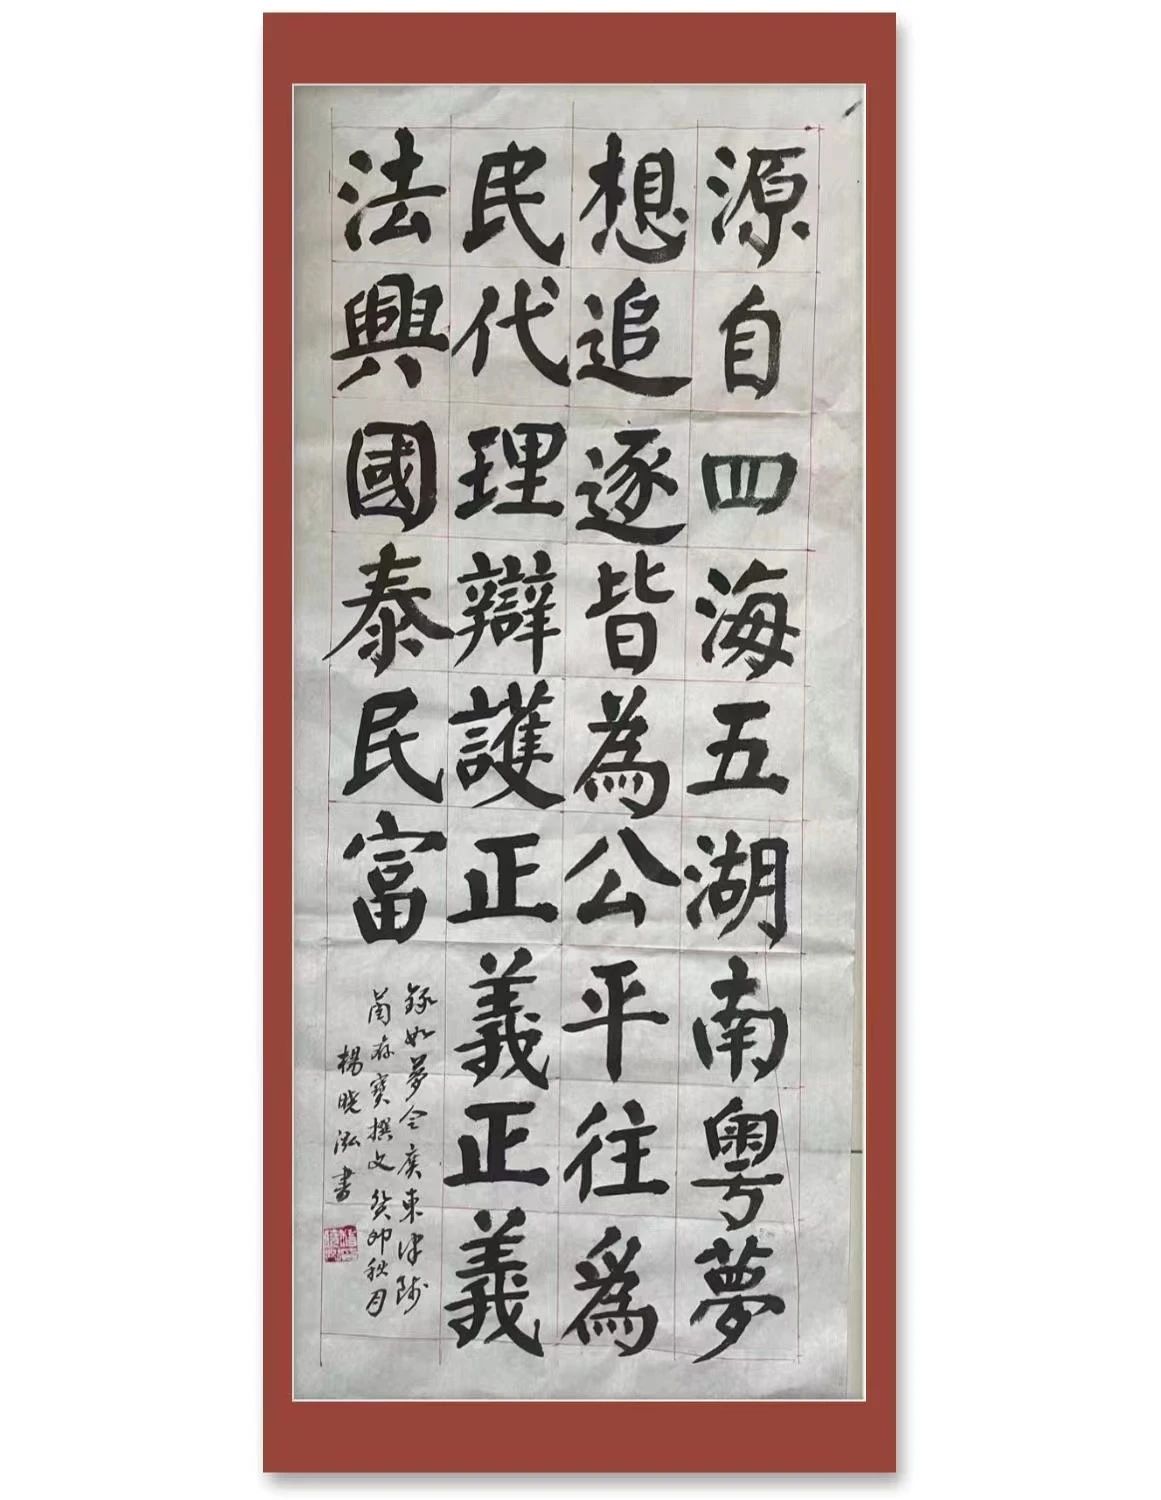 源自四海五湖南粵夢
想追逐皆為公平往爲
民代理辯護正義正義
法興國泰民富
錄如夢令廣東律師
蔔存寶撰文癸卯秋月
楊曉泓書